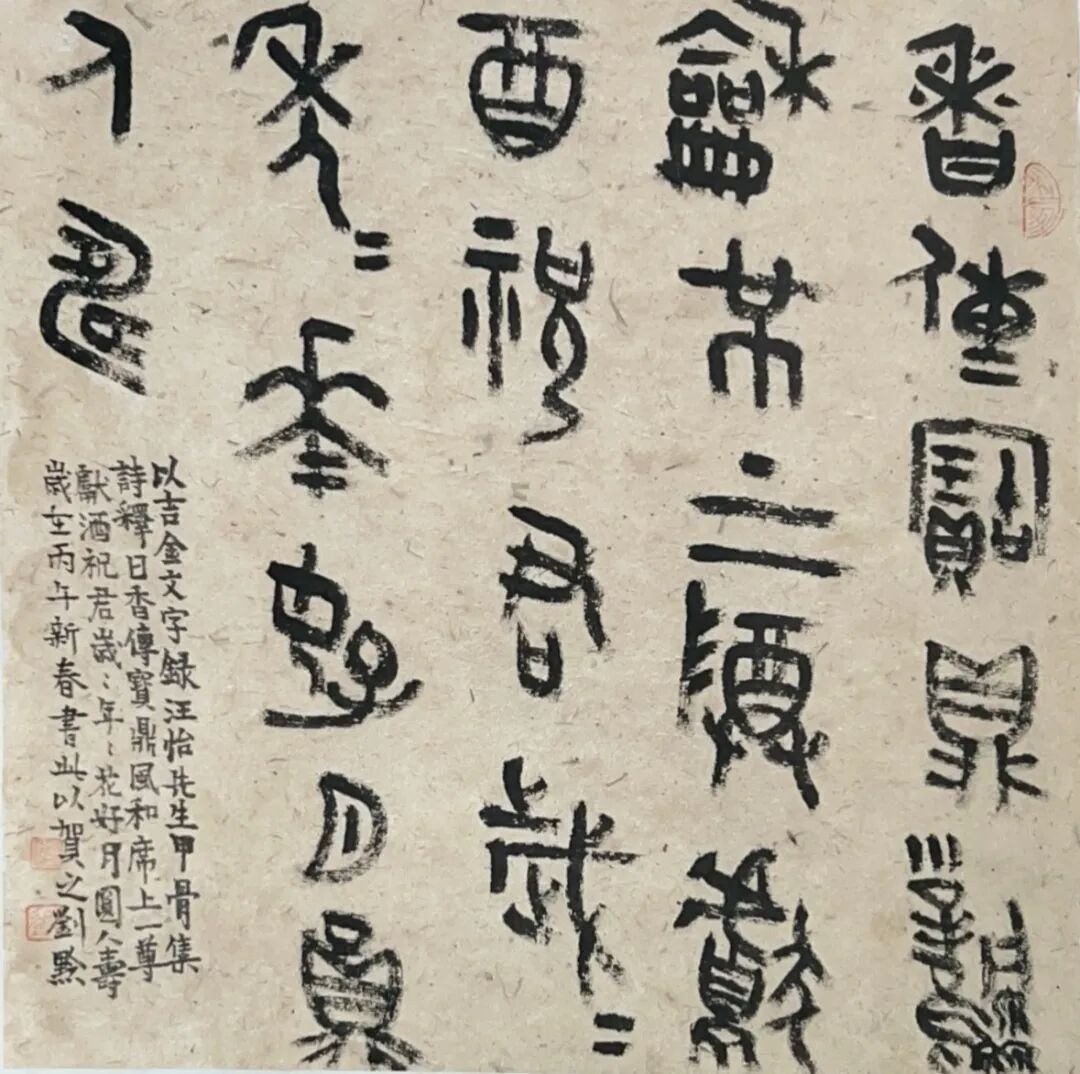 香傳寶鼎風
龢席上一尊獻
酉祝君歲〻
年〻花好月圓
人壽
以吉金文字録汪怡先生甲骨集
詩釋曰香傳寶鼎風和席上一尊
獻酒祝君歲〻年〻花好月圓人壽
歲在丙午新春書此以賀之劉